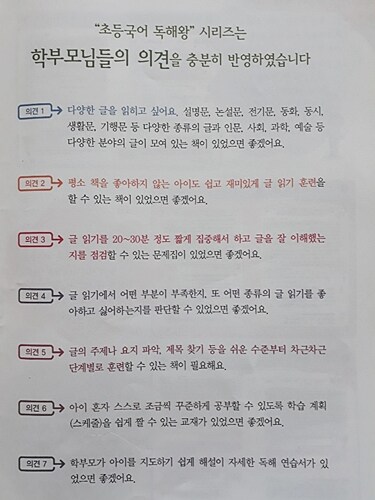 "초등국어 독해왕" 시리즈는
학부모님들의 의견을 충분히 반영하였습니다
의견 1 다양한 글을 읽히고 싶어요. 설명문, 논설문, 전기문, 동화, 동시,
생활문, 기행문 등 다양한 종류의 글과 인문, 사회, 과학, 예술 등
다양한 분야의 글이 모여 있는 책이 있었으면 좋겠어요.
의견 2 평소 책을 좋아하지 않는 아이도 쉽고 재미있게 글 읽기 훈련을
할 수 있는 책이 있었으면 좋겠어요.
의견 3 글 읽기를 20~30분 정도 짧게 집중해서 하고 글을 잘 이해했는
지를 점검할 수 있는 문제집이 있었으면 좋겠어요.
의견 4 글 읽기에서 어떤 부분이 부족한지, 또 어떤 종류의 글 읽기를 좋
아하고 싫어하는지를 판단할 수 있었으면 좋겠어요.
의견 5 글의 주제나 요지 파악, 제목 찾기 등을 쉬운 수준부터 차근차근
단계별로 훈련할 수 있는 책이 필요해요.
의견 6 아이 혼자 스스로 조금씩 꾸준하게 공부할 수 있도록 학습 계획
(스케줄)을 쉽게 짤 수 있는 교재가 있었으면 좋겠어요.
의견 7 학부모가 아이를 지도하기 쉽게 해설이 자세한 독해 연습서가 있
으면 좋겠어요.